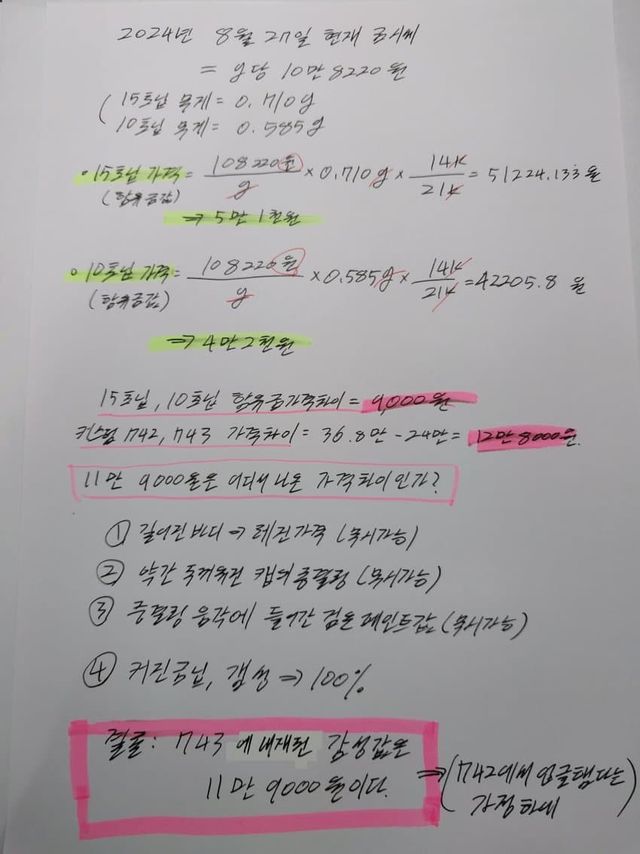 2024년 8월 27일 현재 금시세
= g당 10만 8220원
15호닙 무게 = 0.710g
10호닙 무게 = 0.585g
• 15호닙 가격 = 108220원/g × 0.710g × 14k/21k = 51224.133원
(함유금값)
⇒ 5만 1천원
• 10호닙 가격 = 108220원/g × 0.585g × 14k/21k = 42205.8 원
(함유금값)
⇒ 4만 2천원
15호닙, 10호닙 함유금가격차이 = 9,000원
커스텀 742, 743 가격차이 = 36.8만 - 24만 = 12만 8000원.
11만 9000원은 어디서 나온 가격차이인가?
① 길어진 바디 → 레진가격 (무시가능)
② 약간 두꺼워진 캡의 중결링 (무시가능)
③ 중결링 음각에 들어간 검은 페인트값 (무시가능)
④ 커진금닙, 갬성 ⇒ 100%
결론: 743에 내재된 감성값은
11만 9000원이다.
⇒ (742에서 업글했다는
가정하에)